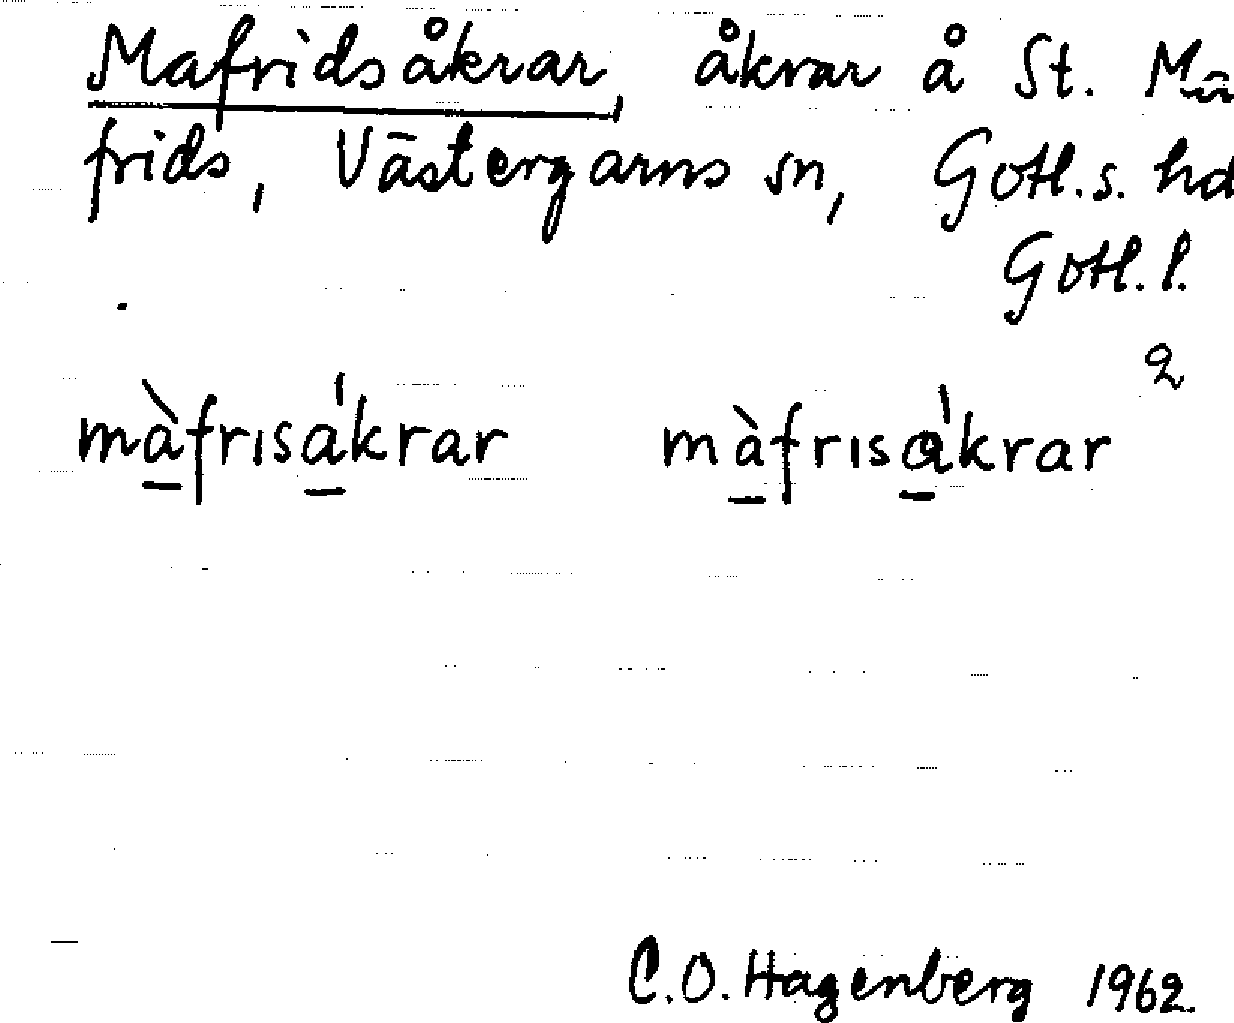 Mafridsåkrar, åkrar å St. Ma
frids, Västergarns sn, Gotl.s. hd
Gotl. l.
2
mà̱frısá̱krar mà̱frısɑ̱́krar
C.O. Hagenberg 1962.